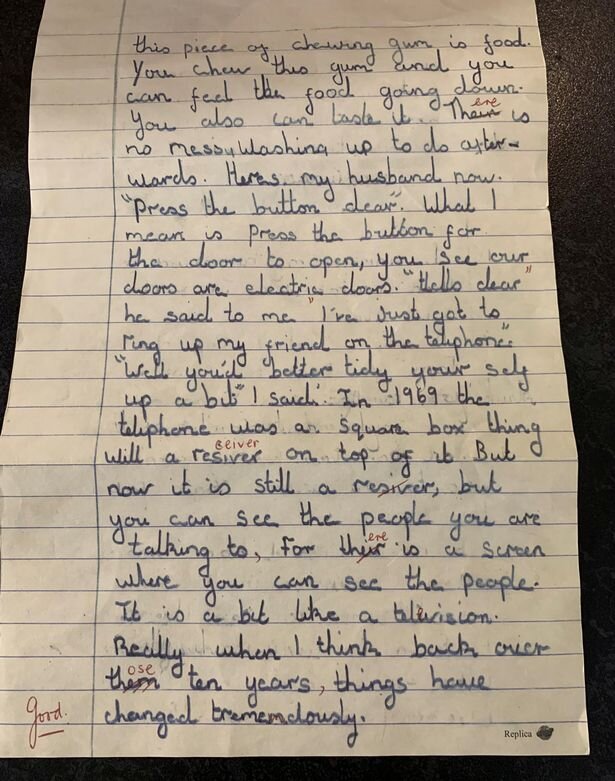 this piece of chewing gum is food.
You chew this gum and you
can feel the food going down.
You also can taste it. Their ere is
no messy washing up to do after-
wards. Heres my husband now.
"Press the button dear". What I
mean is press the button for
the door to open, you see our
doors are electric doors. "Hello dear"
he said to me "I've just got to
ring up my friend on the telephone."
"Well you'd better tidy your self
up a bit" I said. In 1969 the
telephone was a square box thing
ceiver
will a resiver on top of it But
now it is still a resiver, but
you can see the people you are
talking to, for their ere is a screen
where you can see the people.
It is a bit like a television.
Really when I think back over
them ose ten years, things have
changed tremendously.
Good.
Replica